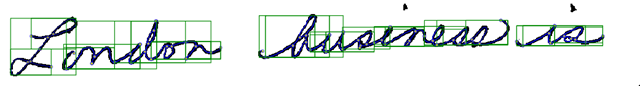 London business is